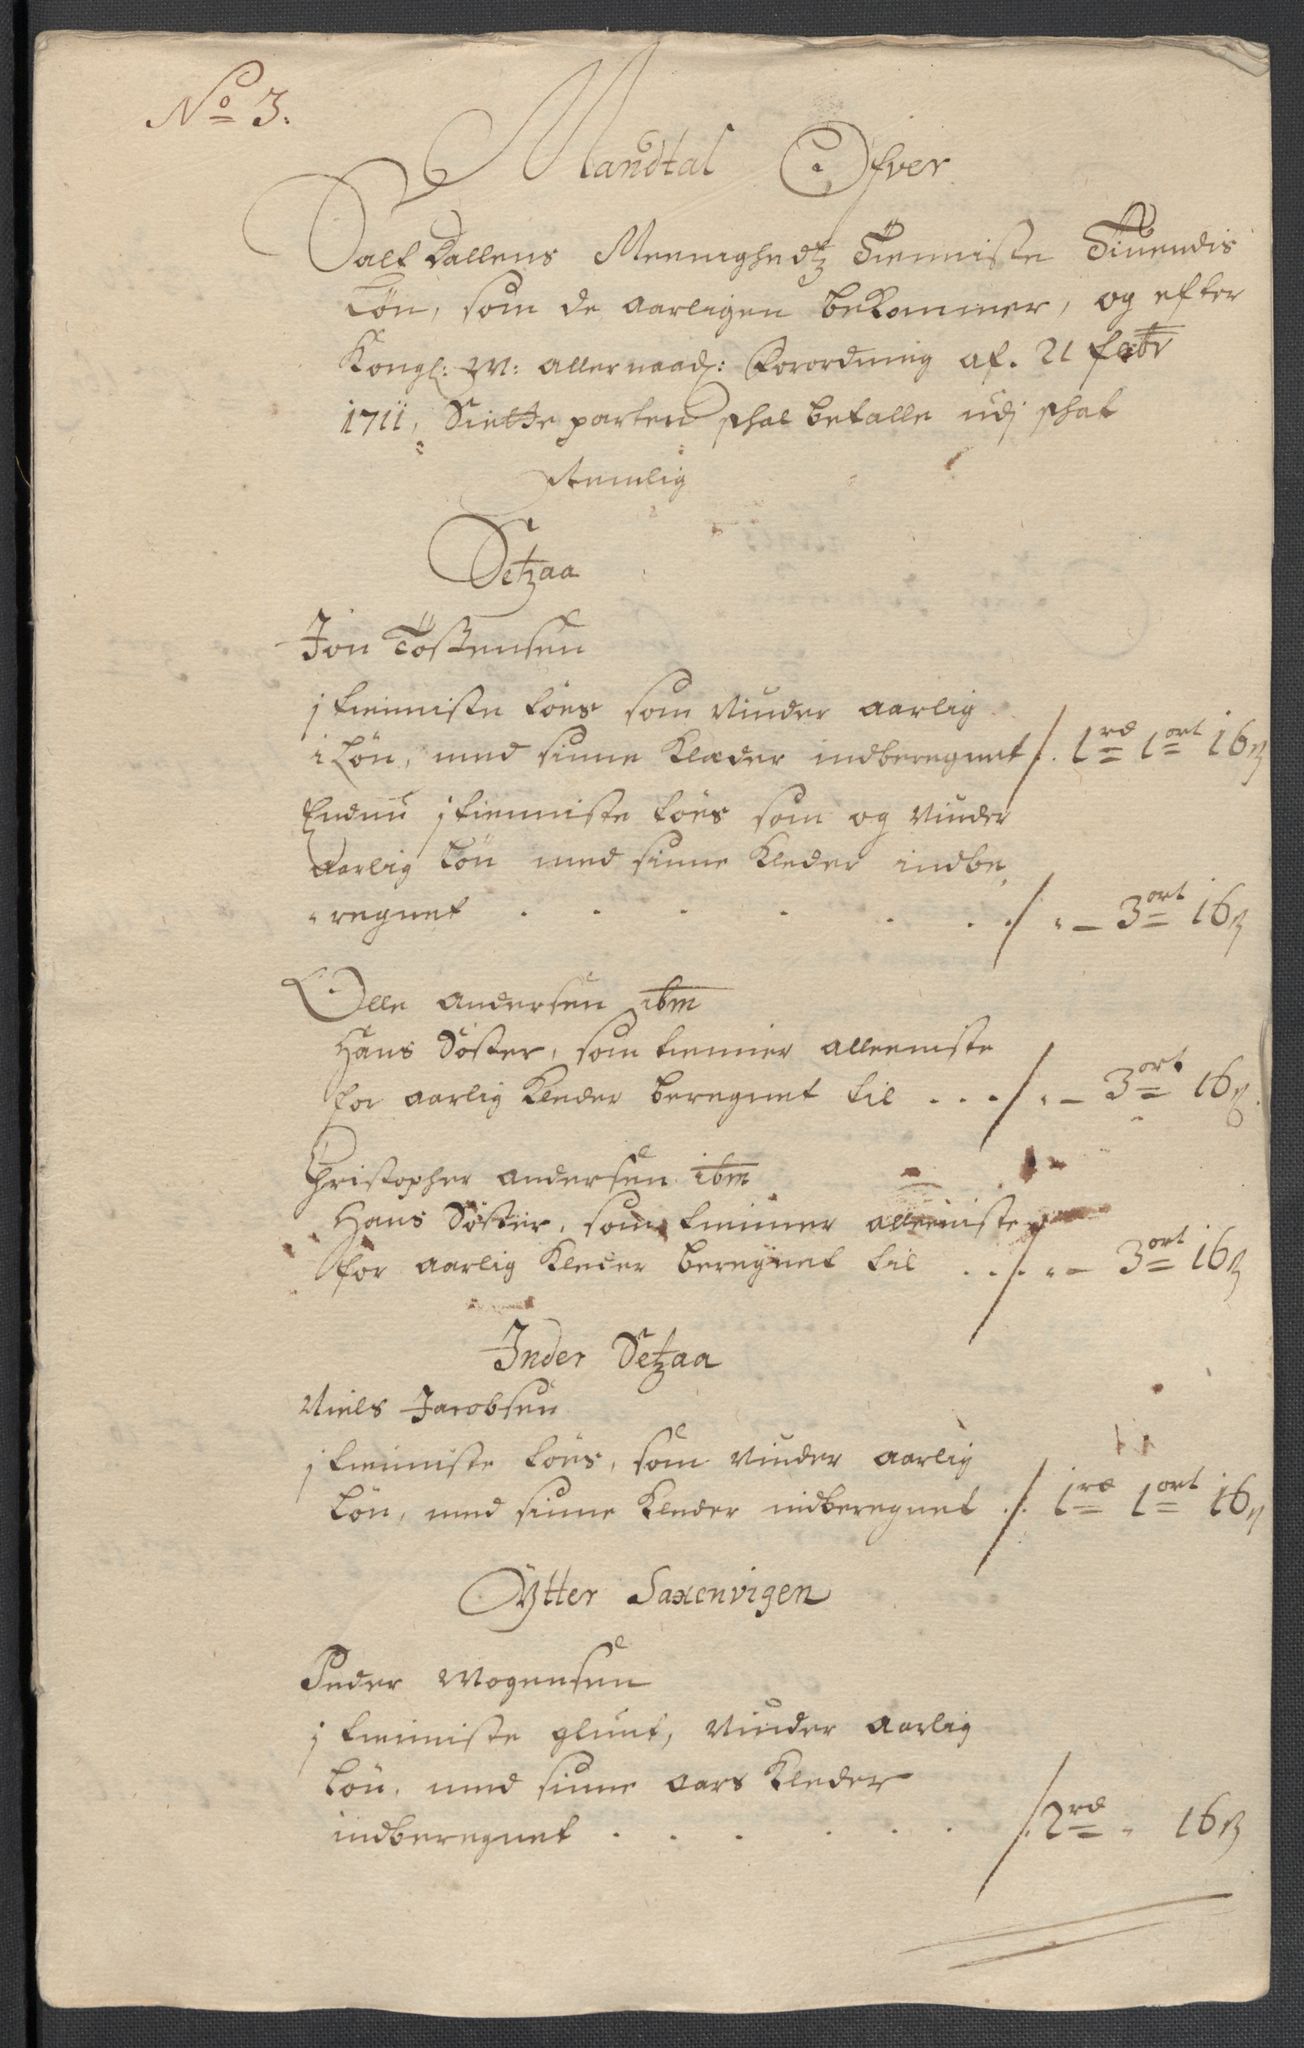 No 3.
Mandtal Ofver
Saltdallens Meenighedtz Tienniste Tiuendis
Løn, som de aarligen bekommer, og efter
Kongl: M: allernaad: Forordning af. 21 febr
1711, Siette parten schal betalle udj schat
Nemlig
Setzaa
Jon Tostensen
j tienniste tøes som vinder aarlig
i Løn, med sinne Klæder indberegnet /. 1 rd 1 ort 16 ß
Endnu j tienniste tøes som og vinder
aarlig Løn med sinne Kleder indbe
regnet . . . . . . / " — 3 ort 16 ß
Olle Andersen ibm
Hans Søster, som tienner alleeniste
for aarlig Kleder beregnet til . . . / " — 3 ort 16 ß.
Christopher Andersen ibm
Hans Søster, som tienner alleeniste
for aarlig Kleder beregnet til . . . / " — 3 ort 16 ß
Inder Setzaa
Niels Jacobsen
j tienniste tøes, som vinder aarlig
Løn, med sinne Kleder indberegnet ./. 1 rd 1 ort 16 ß
Ytter Saxenvigen
Peder Mogensen
j tienniste glunt, vinder aarlig
Løn, med sinne aars Kleder
indberegnet . . . . . . /. 2 rd " 16 ß